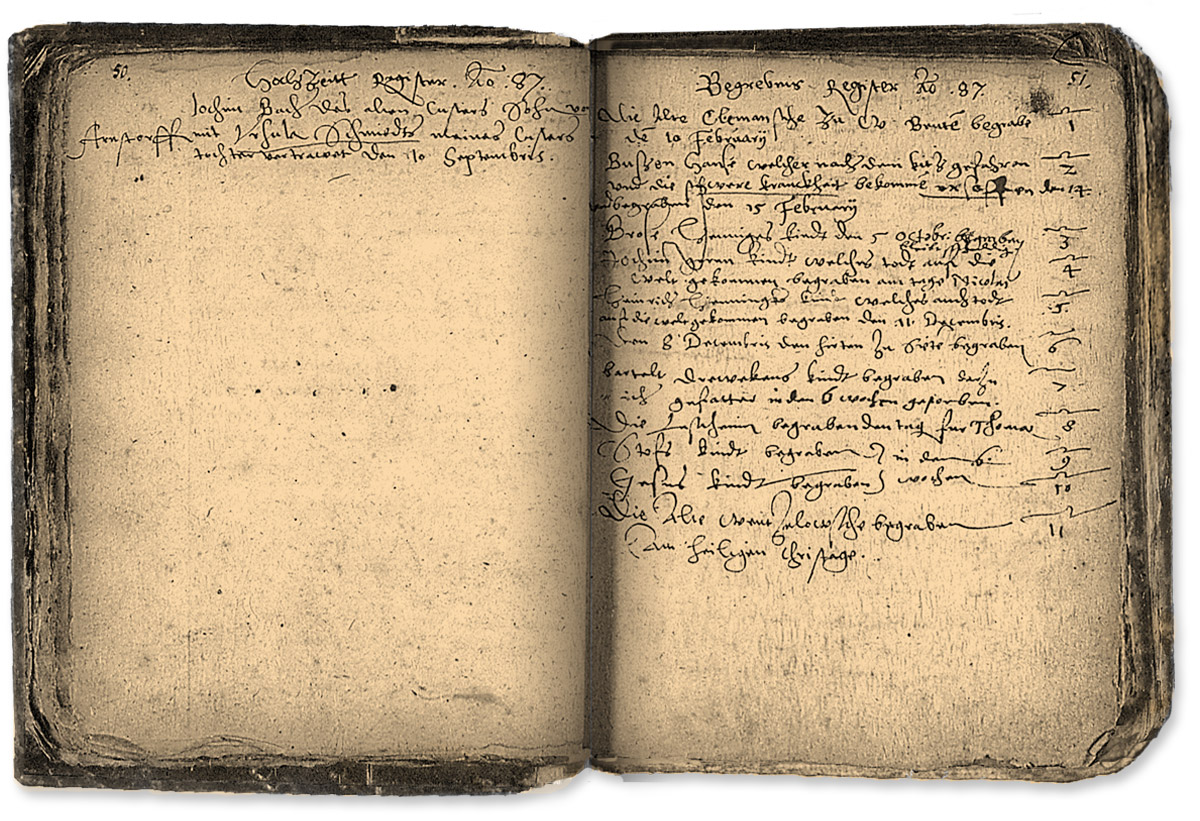 50.
HochZeitt Register. Ao. 87.
Jochim Bach des alten Custers Sohn vo
Arnstorff mit Ursula Schmiedts meines Custers
tochter vertrawet den 10 Septembris.
51.
Begrebnis Register Ao 87
Die Alte Clemansche Zu begrabe 1
de 10 February
Bussen Hanse welcher nach dem gefahren 2
und die schwere kranckheit bekomme den 14
begraben den 15 February
Brose Henniges kindt den 5 Octobr. begraben 3
Jochim kindt welches todt auf die 4
welt gekommen begraben am tage Nicolai
Heinrich Henninges kind welches auch todt 5
auf die welt gekommen begraben den 11 Decembris.
den 8 Decembris den hirten Zu begraben 6
Bartelt Drewekens kindt begraben 7
ich gefatter in den 6 wochen gestorben.
Die begraben den tag fur Thomae 8
kindt begraben in den 6 9
kindt begraben wochen 10
Die Alte begraben 11
Am heiligen Christage.